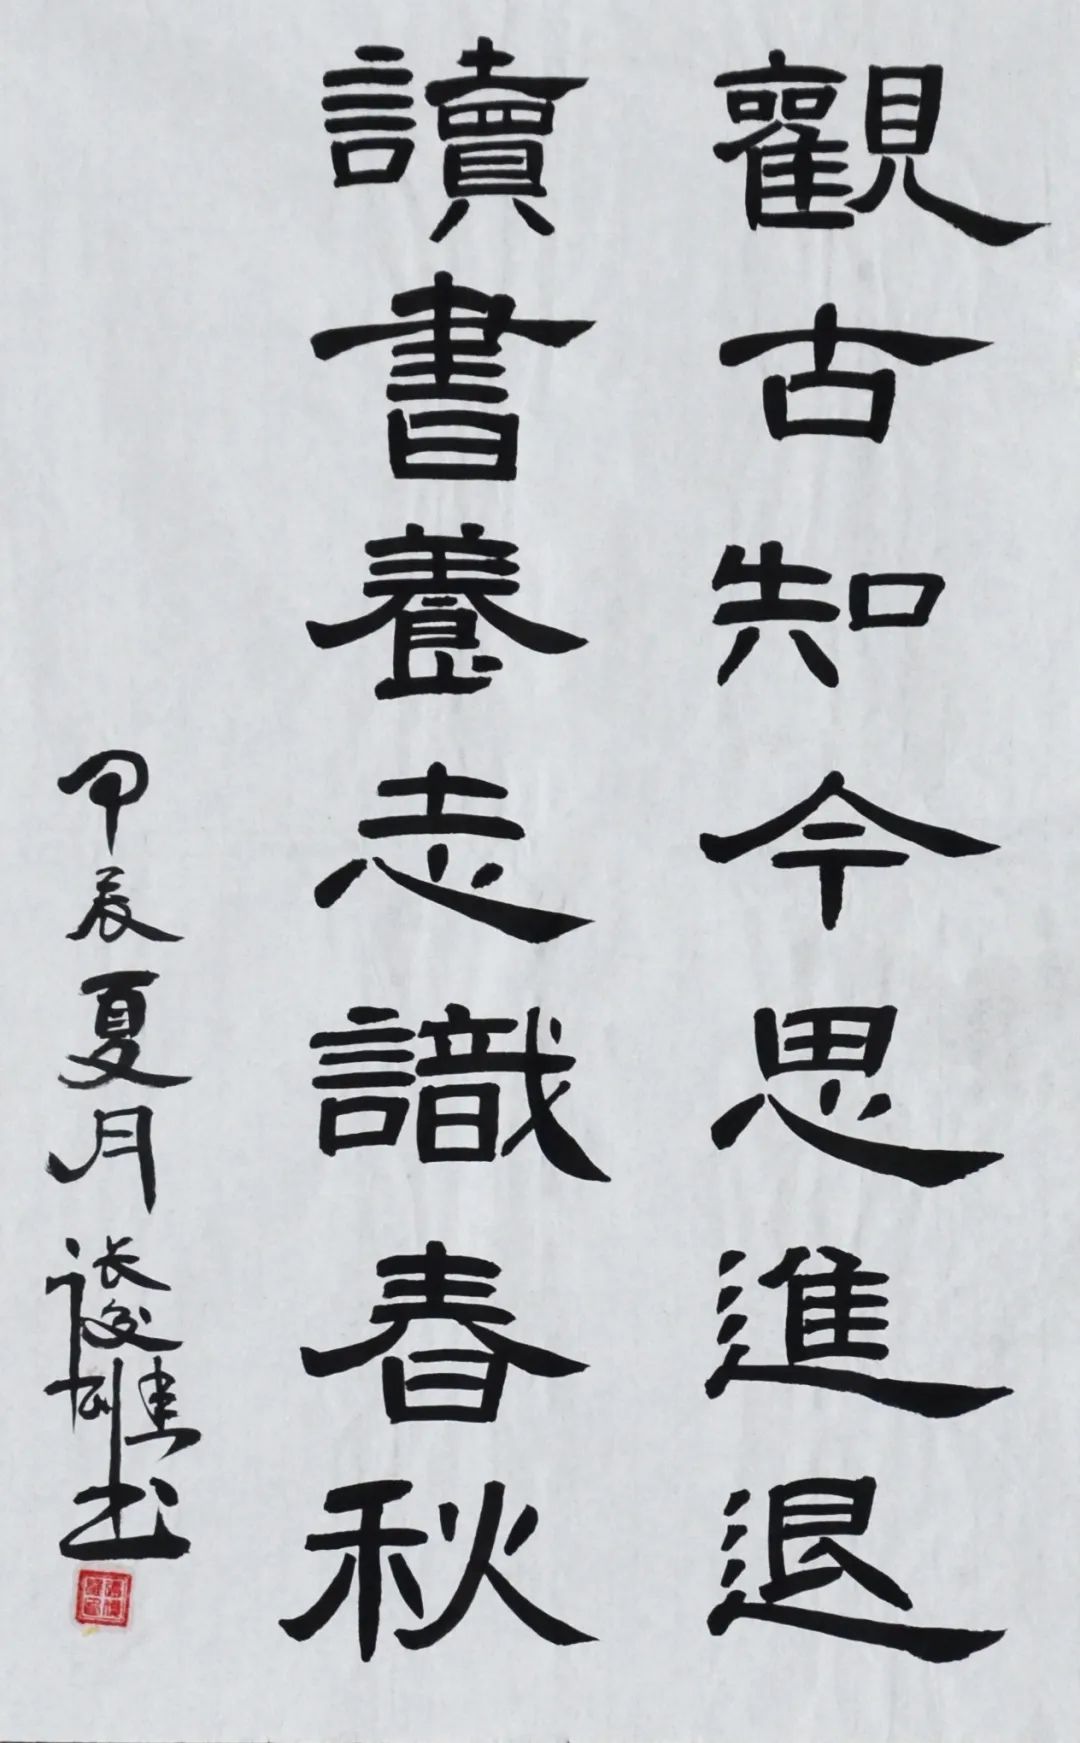 觀古知今思進退
讀書養志識春秋
甲辰夏月张俊雄书